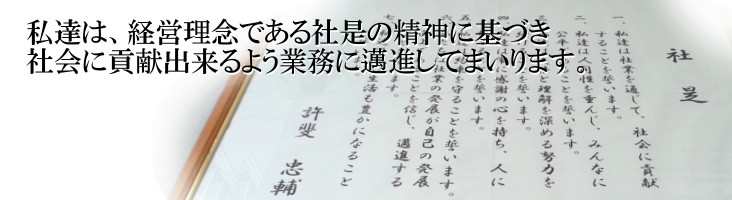 私達は、経営理念である社是の精神に基づき
社会に貢献出来るよう業務に邁進してまいります。
社是
一、私達は社業を通して、社会に貢献
することを誓います。
二、私達は人間性を重んじ、みんなに
公平 ことを誓います。
と理解を深める努力を
を誓います。
四、 に感謝の心を持ち、人に
誓います。
を守ることを誓います。
は社業の発展が自己の発展
ことを信じ、邁進する
生活も豊かになること
許斐 忠輔